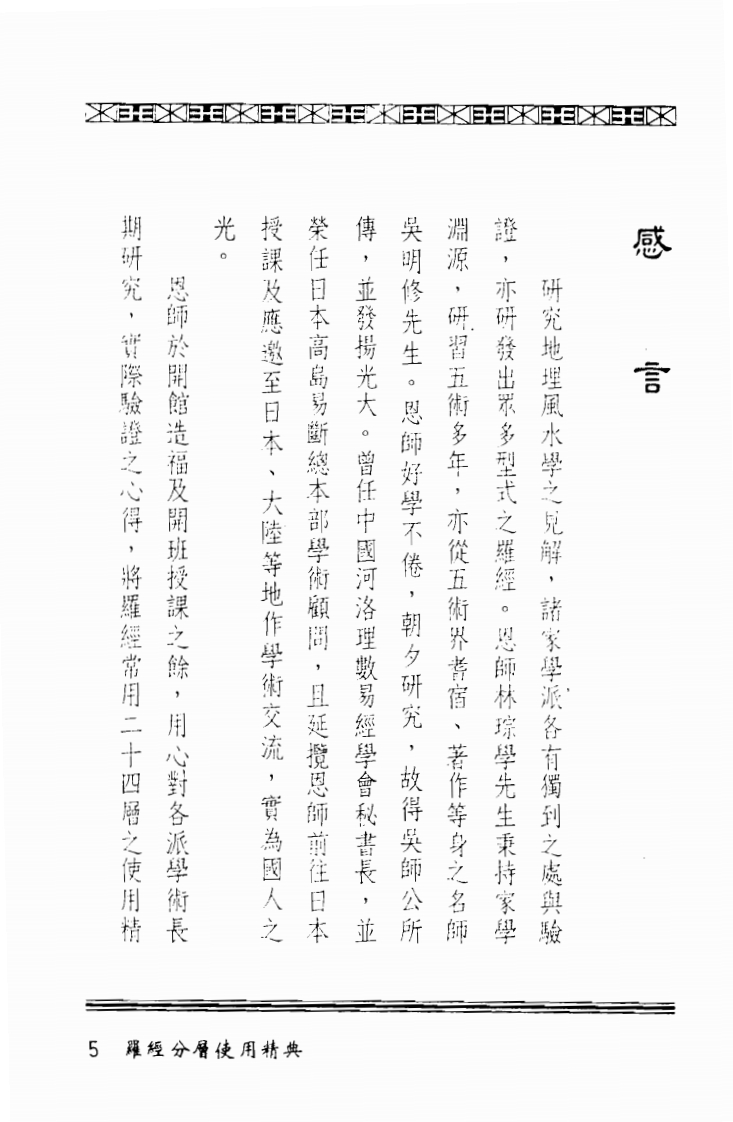 感言
研究地理風水學之見解，諸家學派各有獨到之處與驗
證，亦研發出眾多型式之羅經。恩師林琮學先生秉持家學
淵源，研習五術多年，亦從五術界耆宿、著作等身之名師
吳明修先生。恩師好學不倦，朝夕研究，故得吳師公所
傳，並發揚光大。曾任中國河洛理數易經學會秘書長，並
榮任日本高島易斷總本部學術顧問，且延攬恩師前往日本
授課及應邀至日本、大陸等地作學術交流，實為國人之
光。
恩師於開館造福及開班授課之餘，用心對各派學術長
期研究，實際驗證之心得，將羅經常用二十四層之使用精
5 羅經分層使用精典